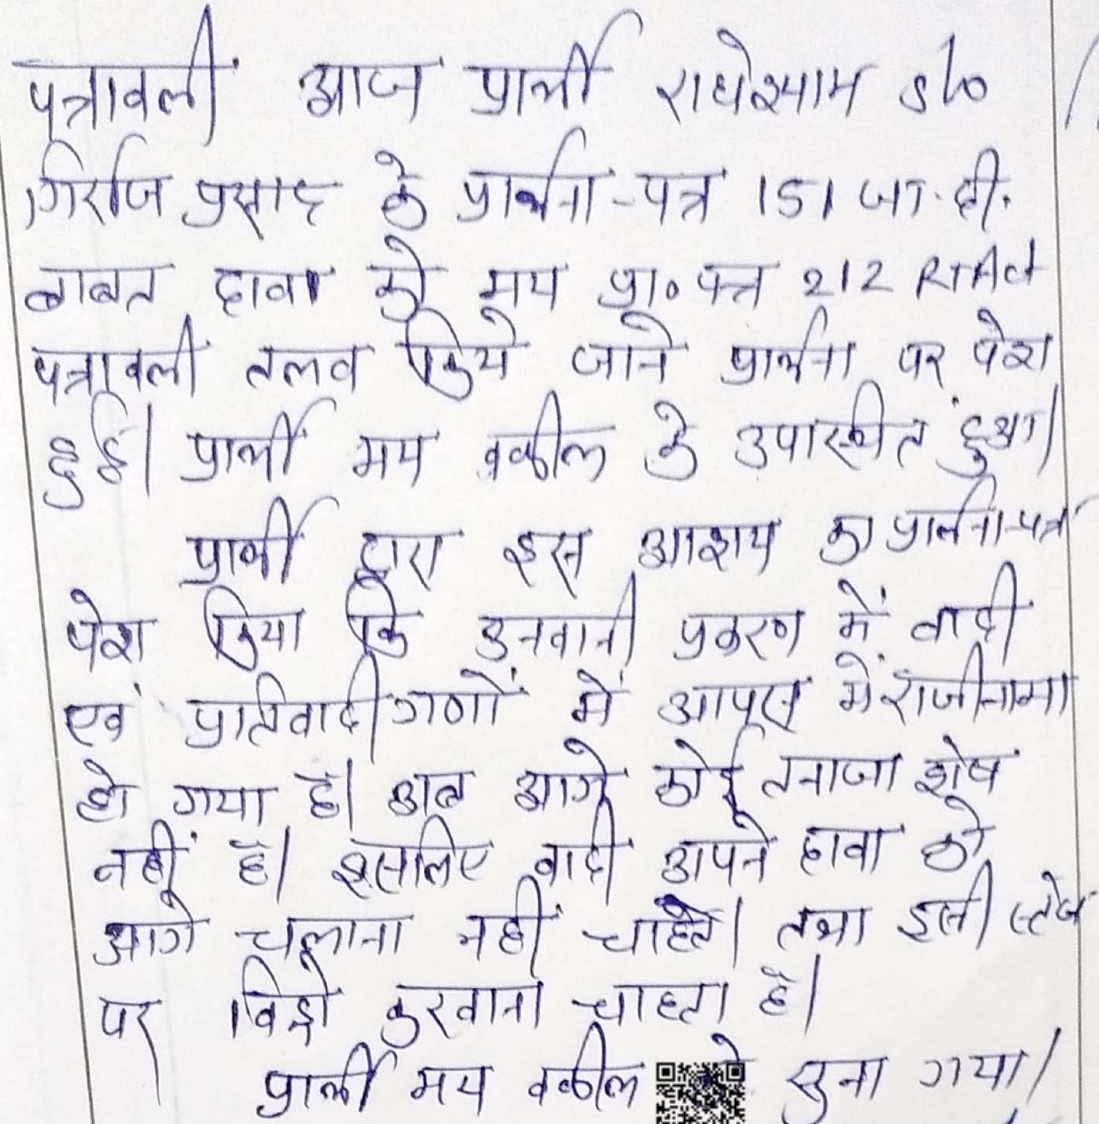 पत्रावली आज प्रार्थी राधेश्याम S/o
गिर्राज प्रसाद के प्रार्थना-पत्र 151 जा.दी.
बाबत दावा को मय प्रा० पत्र 212 RTAct
पत्रावली तलब किये जाने प्रार्थना पर पेश
हुई। प्रार्थी मय वकील के उपस्थीत हुआ।
प्रार्थी द्वारा इस आशय का प्रार्थना-पत्र
पेश किया कि उनवानी प्रकरण में वादी
एवं प्रतिवादीगणों में आपस में राजीनामा
हो गया है। अब आगे कोई तनाजा शेष
नहीं है। इसलिए वादी अपने दावा को
आगे चलाना नहीं चाहते। तथा इसी स्तेज
पर विड्रो करवाना चाहता है।
प्रार्थी मय वकील सुना गया।